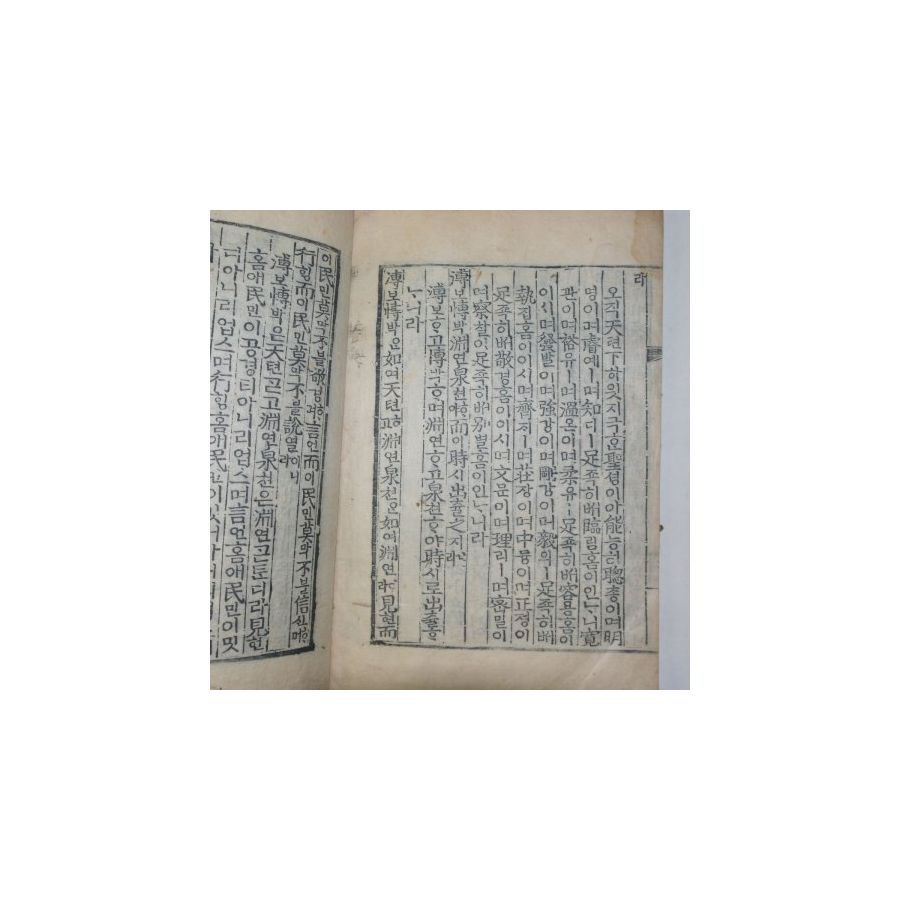 라
오직天텬下하앳지극호聖셩이아能능히聰총이며明
명이며睿예ㅣ며知디ㅣ足족히ᄡᅥ臨림홈이인ᄂᆞ니寬
관이며裕유ㅣ며溫온이며柔유ㅣ足족히ᄡᅥ容용홈이
이시며發발이며強강이며剛강이며毅의ㅣ足족히ᄡᅥ
執집홈이이시며齊ᄌᆡㅣ며莊장이며中듕이며正졍이
足족히ᄡᅥ敬경홈이이시며文문이며理리ㅣ며密밀이
며察찰이足족히ᄡᅥ別별홈이인ᄂᆞ니라
溥보博박淵연泉쳔ᄒᆞ야而이時시出츌之지라
溥보ᄒᆞ고博박ᄒᆞ며淵연ᄒᆞ고泉쳔ᄒᆞ야時시로出츌ᄒᆞ
ᄂᆞ니라
溥보博박은如여天텬ᄒᆞ고淵연泉쳔은如여淵연ᄒᆞ니라見현而
이民민莫막不블敬경ᄒᆞ며言언而이民민莫막不블信신ᄒᆞ며
行ᄒᆡᆼ而이民민莫막不블說열이니라
溥보博박은天텬ᄀᆞᆮ고淵연泉쳔은淵연ᄀᆞᆮᄐᆞᆫ디라見현
홈애民민이공경티아니리업스며言언홈애民민이밋
디아니리업스며行ᄒᆡᆼ홈애民민이